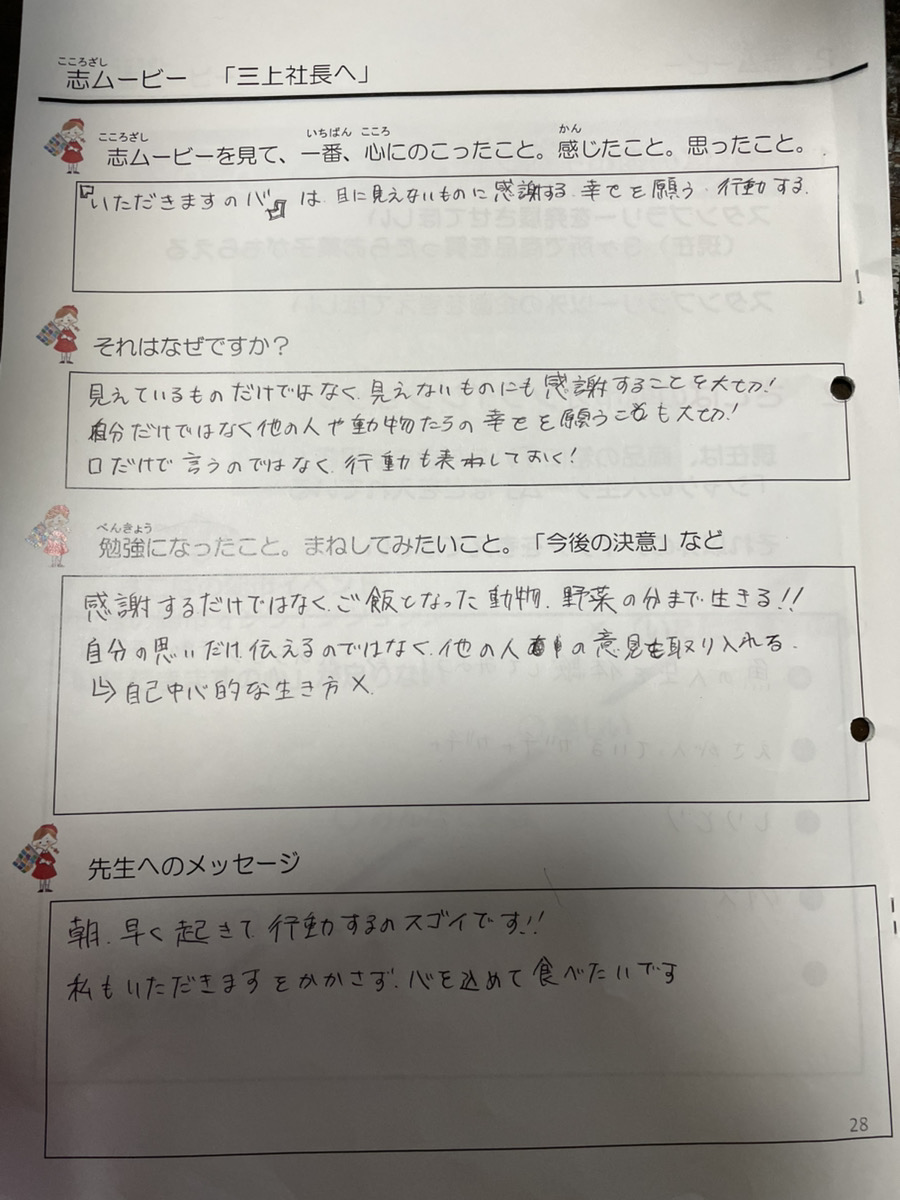 こころざし
志ムービー 「三上社長へ」
こころざし いちばん こころ かん
志ムービーを見て、一番、心にのこったこと。感じたこと。思ったこと。
『いただきますの心』は、目に見えないものに感謝する、幸せを願う、行動する。
それはなぜですか?
見えているものだけではなく、見えないものにも感謝することを大切!
自分だけではなく他の人や動物たちの幸せを願うことも大切!
口だけで言うのではなく、行動も しておく!
べんきょう
勉強になったこと。まねしてみたいこと。「今後の決意」など
感謝するだけではなく、ご飯となった動物、野菜の分まで生きる!!
自分の思いだけ伝えるのではなく、他の人の意見も取り入れる。
↳自己中心的な生き方×。
先生へのメッセージ
朝、早く起きて、行動するのスゴイです!!
私もいただきますをかかさず、心を込めて食べたいです
28